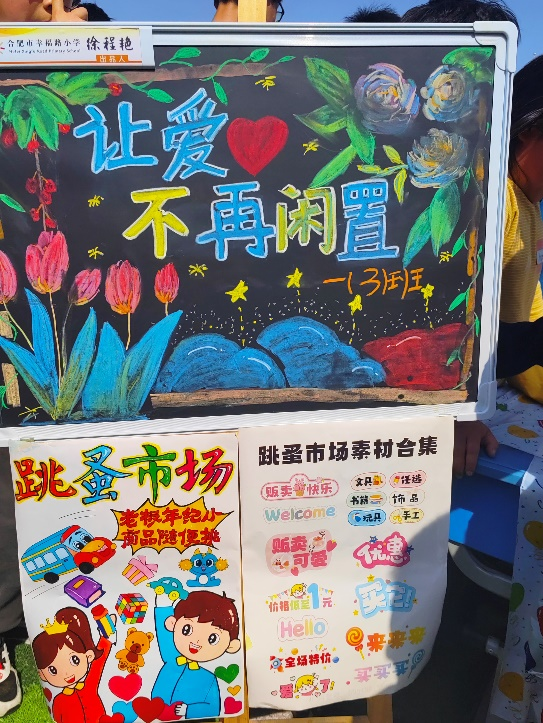 合肥市幸福路小学
Hefei Xingfu Road Primary School
徐程艳
出品人
让爱
不再闲置
一(3)班
跳蚤市场
老板年纪小
商品随便挑
跳蚤市场素材合集
贩卖快乐
文具 任选
Welcome
书籍 饰品
玩具 手工
贩卖可爱
优惠
价格低至1元
买它!
Hello
来来来
全场特价
爱了